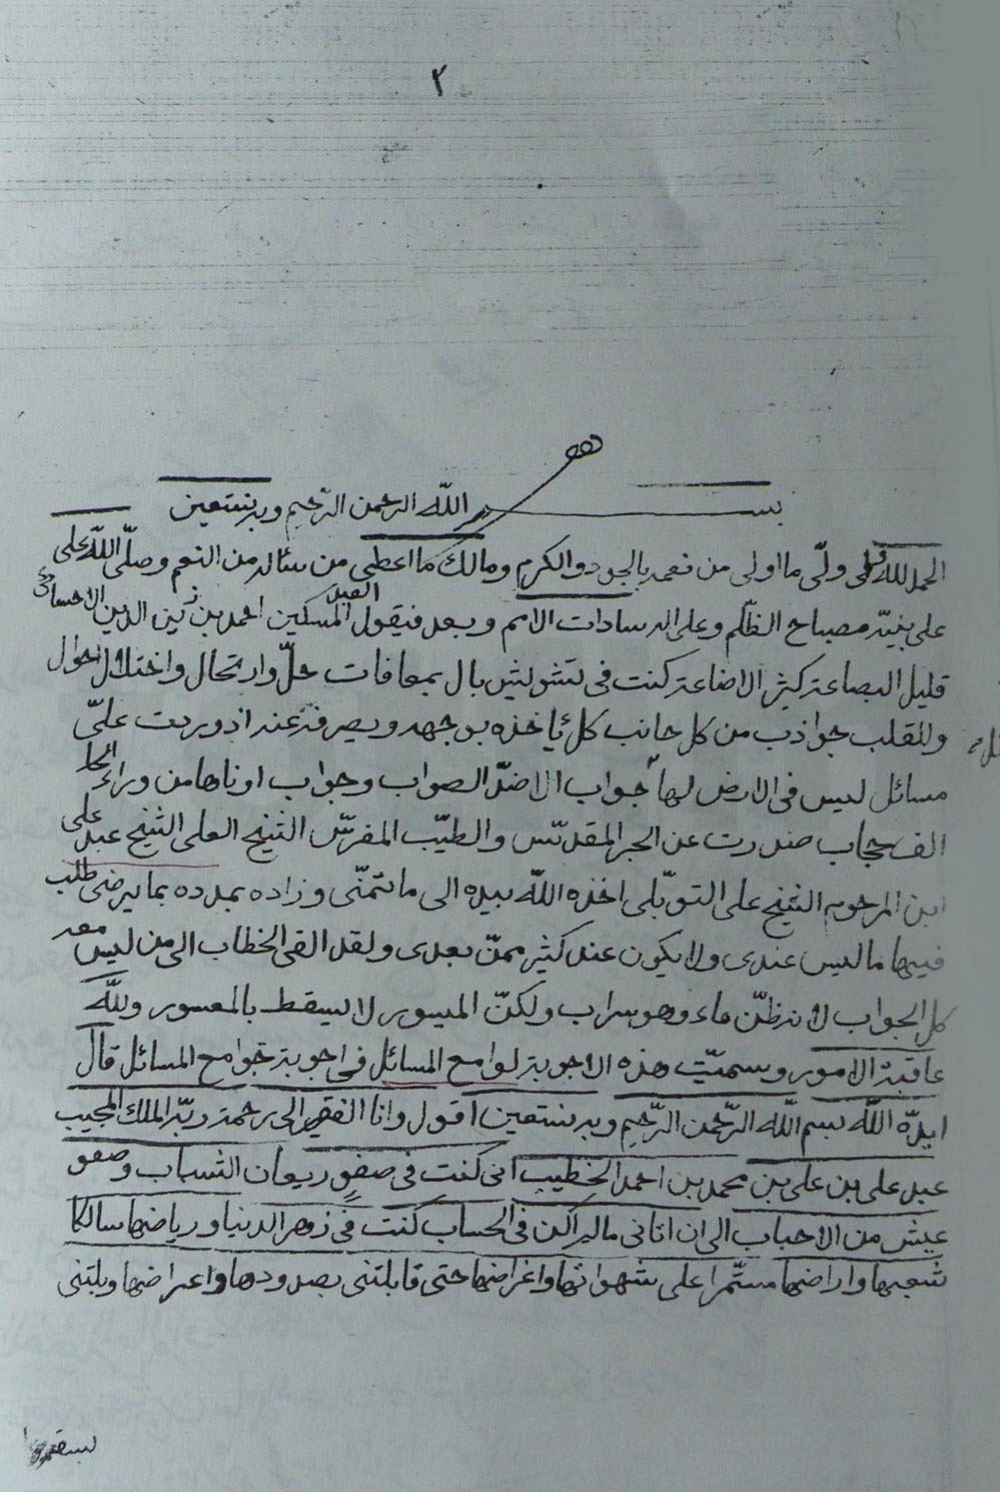 ٢
هو
بسم الله الرحمن الرحيم وبه نستعين
الحمد لله على ولّى ما اولى من نعمه بالجود والكرم ومالك ما اعطى من سأله من النعم وصلّى اللّه على
على نبيّه مصباح الظّلم وعلى اله سادات الامم وبعد فيقول العبد المسكين احمد بن زين الدين الاحسائى
قليل البضاعة كثير الاضاعة كنت فى تشويش بال بمعافات حلّ وارتحال واختلال احوال
وللقلب جواذب من كل جانب كل ياخذه بوجهه ويصرفه عنه اذ وردت علىّ
مسائل ليس فى الارض لها جواب الا ضدّ الصواب وجواب اوناها من وراء
الف حجاب صدرت عن الحبر المقدّس والطيّب المغرس الشيخ العلى الشيخ عبد على
ابن المرحوم الشيخ على التوبلى اخذه اللّه بيده الى ما يتمنّى وزاده بمدده بما يرضى طلب
فيها ما ليس عندى ولا يكون عند كثير ممّن بعدى ولقد القى الخطاب الى من ليس معه
كل الجواب لانه ظنّ ماء وهو سراب ولكنّ الميسور لا يسقط بالمعسور وللّه
عاقبة الامور وسمّيت هذه الاجوبة لوامع المسائل فى اجوبة جوامع المسائل قال
ايدّه اللّه بسم اللّه الرّحمن الرّحيم وبه نستعين اقول وانا الفقير الى رحمة ربّه الملك المجيب
عبد على بن على بن محمد بن احمد الخطيب انى كنت فى صفو ريعان الشباب وصفو
عيش من الاحباب الى ان اتانى ما لم اكن فى الحساب كنت فى زهر الدنيا ورياضها سالكا
شعبها واراضها مستمّرا على شهواتها واغراضها حتى قابلتنى بصدودها واعراضها وبلتنى